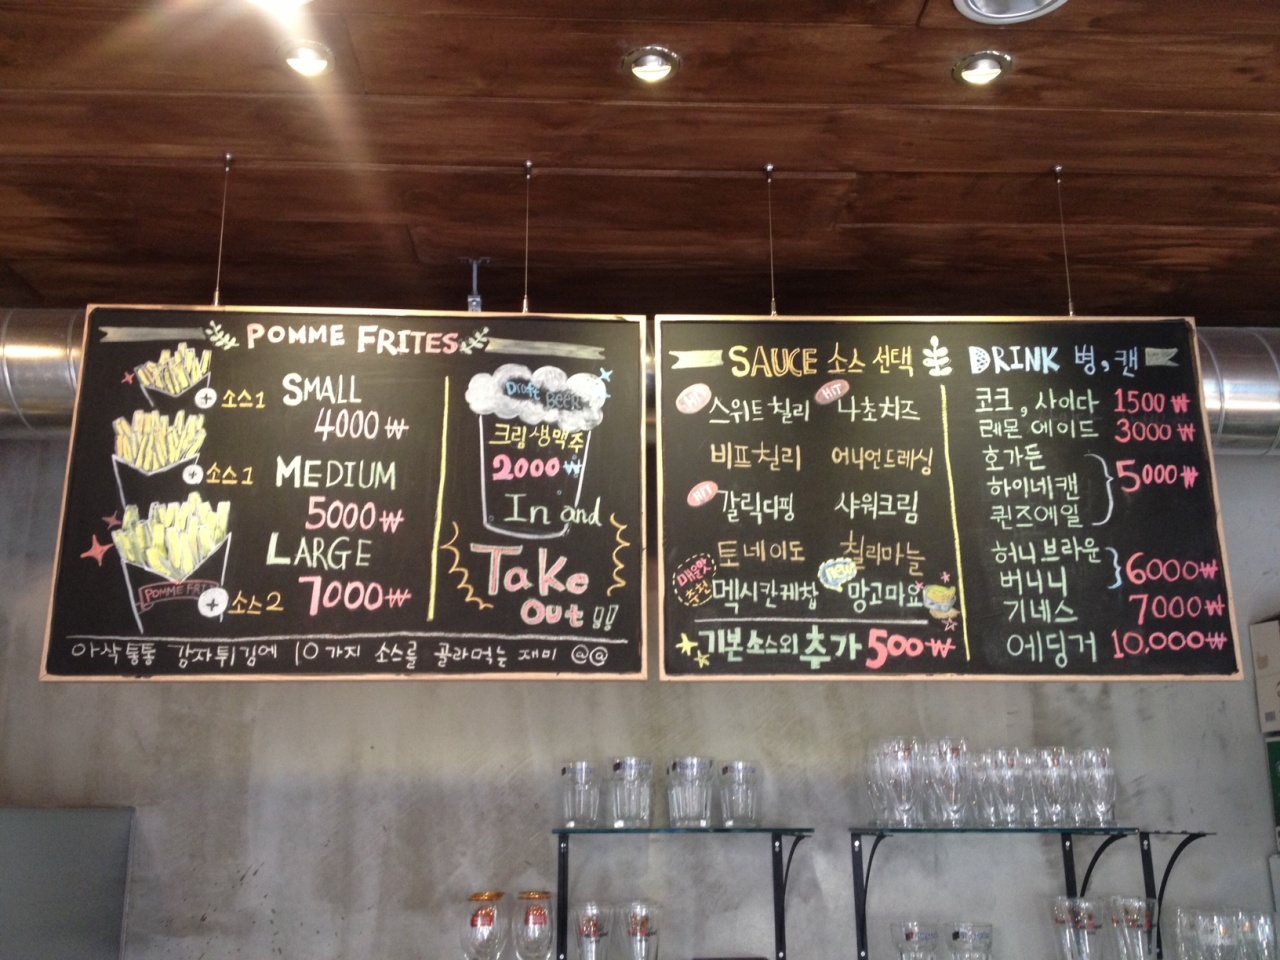 POMME FRITES
소스1 SMALL
4000₩
소스1 MEDIUM
5000₩
LARGE
소스2 7000₩
POMME FRI
Draft BEER
크림생맥주
2000₩
In and
Take
Out!!
아삭통통 감자튀김에 10가지 소스를 골라먹는 재미 @@
SAUCE 소스 선택
HIT 스위트칠리 HIT 나초치즈
비프칠리 어니언드레싱
HIT 갈릭디핑 샤워크림
토네이도 칠리마늘
매운맛 추천 멕시칸케찹 new 망고마요
기본소스외 추가 500₩
DRINK 병, 캔
코크, 사이다 1500₩
레몬에이드 3000₩
호가든
하이네캔 5000₩
퀸즈에일
허니브라운
버니니 6000₩
기네스 7000₩
에딩거 10,000₩